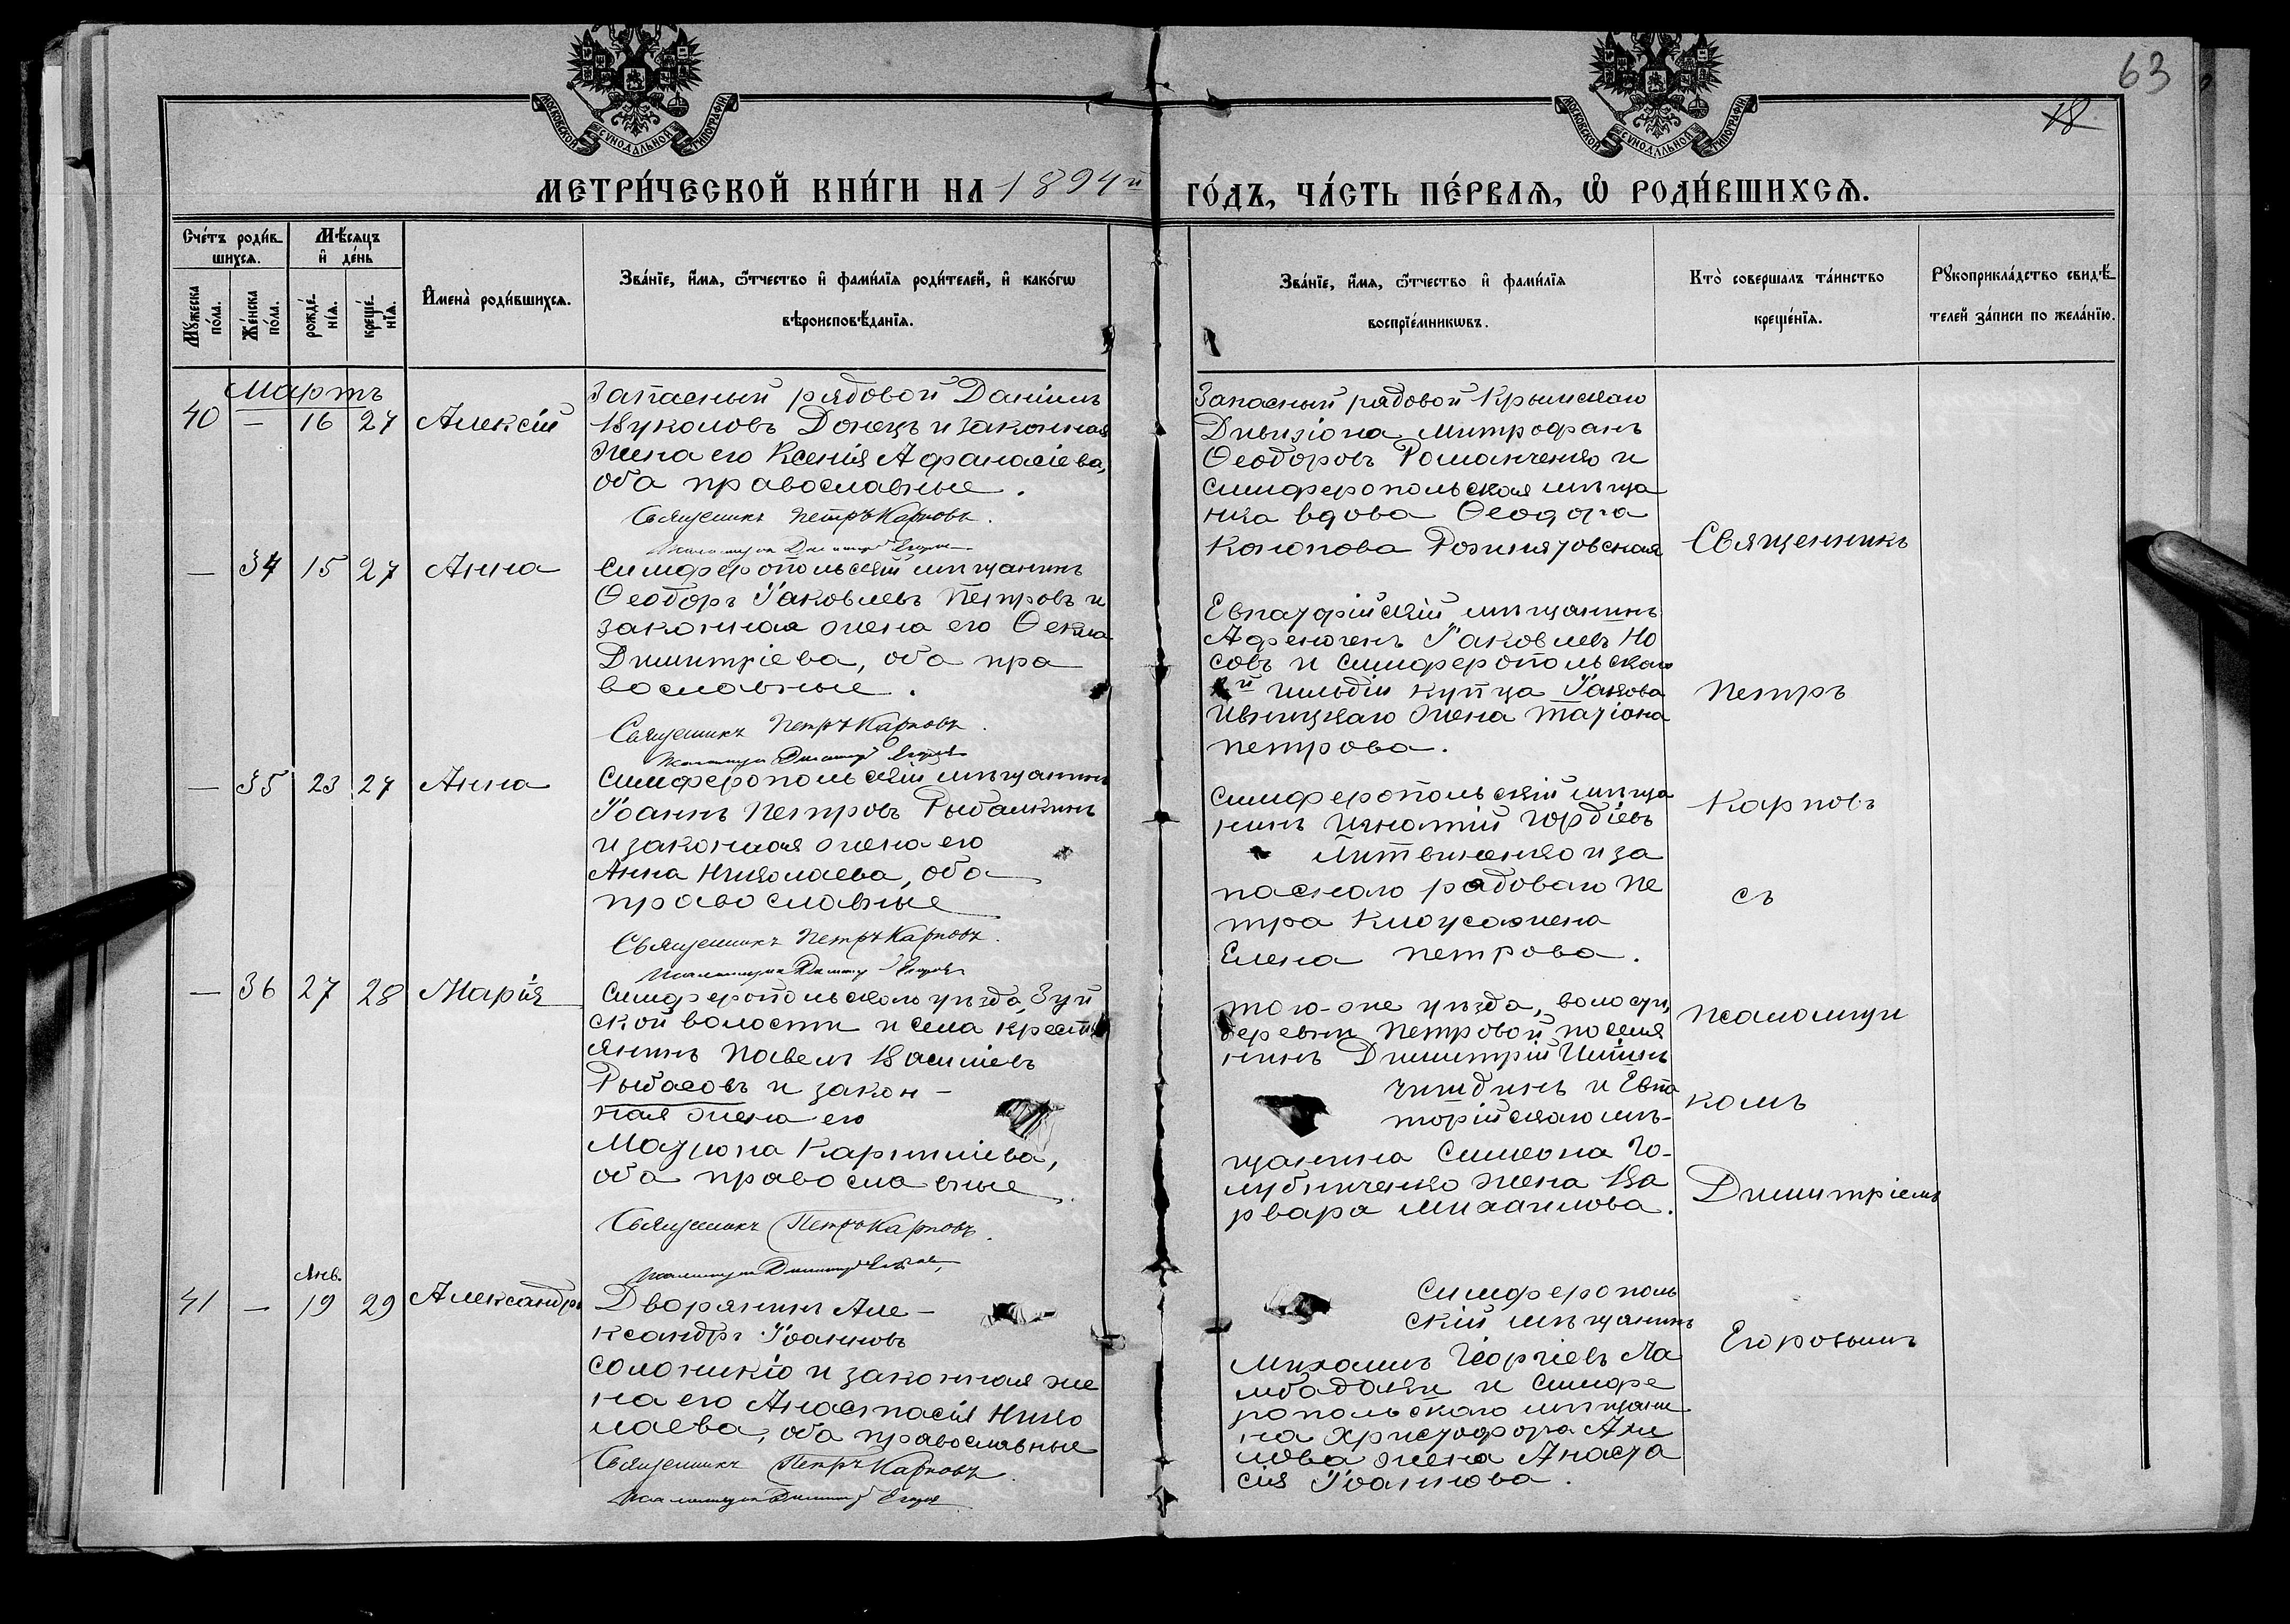 63
18
МОСКОВСКОЙ СѴНОДАЛЬНОЙ ТИПОГРАФІИ
МОСКОВСКОЙ СѴНОДАЛЬНОЙ ТИПОГРАФІИ
МЕТРИ́ЧЕСКОЙ КНИ́ГИ НА 1894й ГО́ДЪ, ЧА́СТЬ ПЕ́РВАѦ, Ѡ РОДИ́ВШИХСѦ.
Сче́тъ роди́в
шихсѧ.
Мѣ́сѧцъ
и де́нь
Мꙋ́жеска
по́ла.
Же́нска
по́ла.
рожде́
нїѧ.
креще́
нїѧ.
Имена̀ роди́вшихсѧ.
Зва́нїе, и́мѧ, ѻ́тчество и фами́лїѧ роди́телей, и како́гѡ
вѣроисповѣ́данїѧ.
Зва́нїе, и́мѧ, ѻ́тчество и фами́лїѧ
воспрїе́мникѡвъ.
Кто̀ соверша́лъ та́инство
креще́нїѧ.
Рꙋкоприкла́дство свидѣ́
телей за́писи по жела́нїю.
Мартъ
40 — 16 27 Алексій
Запасный рядовой Даніилъ
Вуколовъ Донецъ и законная
жена его Ксенія Афанасіева,
оба православные.
Священникъ Петръ Карповъ.
Псаломщикъ Димитрій Егоровъ
Запасный рядовой Крымскаго
Дивизіона Митрофанъ
Ѳеодоровъ Романченко и
симферопольская мѣща
нка вдова Ѳеодора
Кононова
— 34 15 27 Анна
Симферопольскій мѣщанинъ
Ѳеодоръ Іаковлевъ Петровъ и
законная жена его Ѳекла
Димитріева, оба пра
вославные.
Священникъ Петръ Карповъ.
Псаломщикъ Димитрій Егоровъ
Евпаторійскій мѣщанинъ
Аѳиногенъ Іаковлевъ Но
совъ и симферопольскаго
й гильдіи купца Іакова
жена Татіана
Петрова.
— 35 23 27 Анна
Симферопольскій мѣщанинъ
Іоаннъ Петровъ Рыбалкинъ
и законная жена его
Анна Николаева, оба
православные
Священникъ Петръ Карповъ.
Псаломщикъ Димитрій Егоровъ
Симферопольскій мѣща
нинъ Игнатій Гордіевъ
Литвиненко и за
паснаго рядоваго Пе
тра жена
Елена Петрова.
— 36 27 28 Марія
Симферопольскаго уѣзда, Зуй
ской волости и села крестья
янинъ Павелъ Василіевъ
Рыбасовъ и закон-
ная жена его
Матрона
оба православные.
Священникъ Петръ Карповъ.
Псаломщикъ Димитрій Егоровъ
того-же уѣзда, волости,
деревни Петровой поселя
нинъ Димитрій
и Евпа
торійскаго мѣ-
щанина Симеона Го-
лубниченко жена Ва
рвара Михаилова.
Янв.
41 — 19 29 Александръ
Дворянинъ Але-
ксандръ Іоанновъ
Солоникіо и законная же
на его Анастасія Нико
лаева, оба православные
Священникъ Петръ Карповъ.
Псаломщикъ Димитрій Егоровъ
Симферополь
скій мѣщанинъ
Михаилъ Георгіевъ Ла
мбадаки и симфе
ропольскаго мѣщани
на Христофора
жена Анаста
сія Іоаннова.
Священникъ
Петръ
Карповъ
съ
псаломщи
комъ
Димитріемъ
Егоровымъ